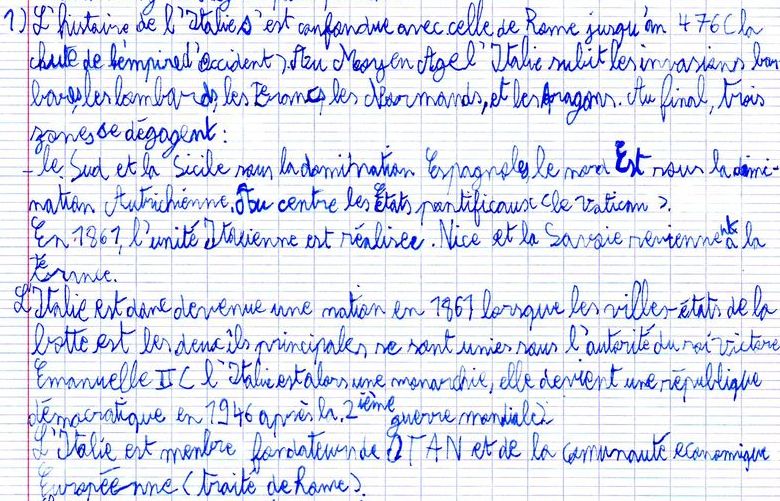 1) L'histoire de l'Italie s'est confondue avec celle de Rome jusqu'an 476 (la
chute de l'empire d'Occident). Au Moyen Age l'Italie subit les invasions bar
bares, les lombards, les Francs, les Normands, et les Aragons. Au final, trois
zones se dégagent :
- le Sud et la Sicile sous la domination Espagnole, le nord Est sous la domi-
nation Autrichienne. Au centre les États pontificaux (le Vatican).
En 1861, l'unité Italienne est réalisée. Nice et la Savoie reviennent à la
France.
L'Italie est donc devenue une nation en 1861 lorsque les villes-états de la
botte est les deux îls principales se sont unies sous l'autorité du roi Victore
Emanuelle II ( l'Italie est alors une monarchie, elle devient une république
démocratique en 1946 après la 2ième guerre mondiale).
L'Italie est membre fondateur de OTAN et de la comunauté economique
Européenne (traité de Rome).